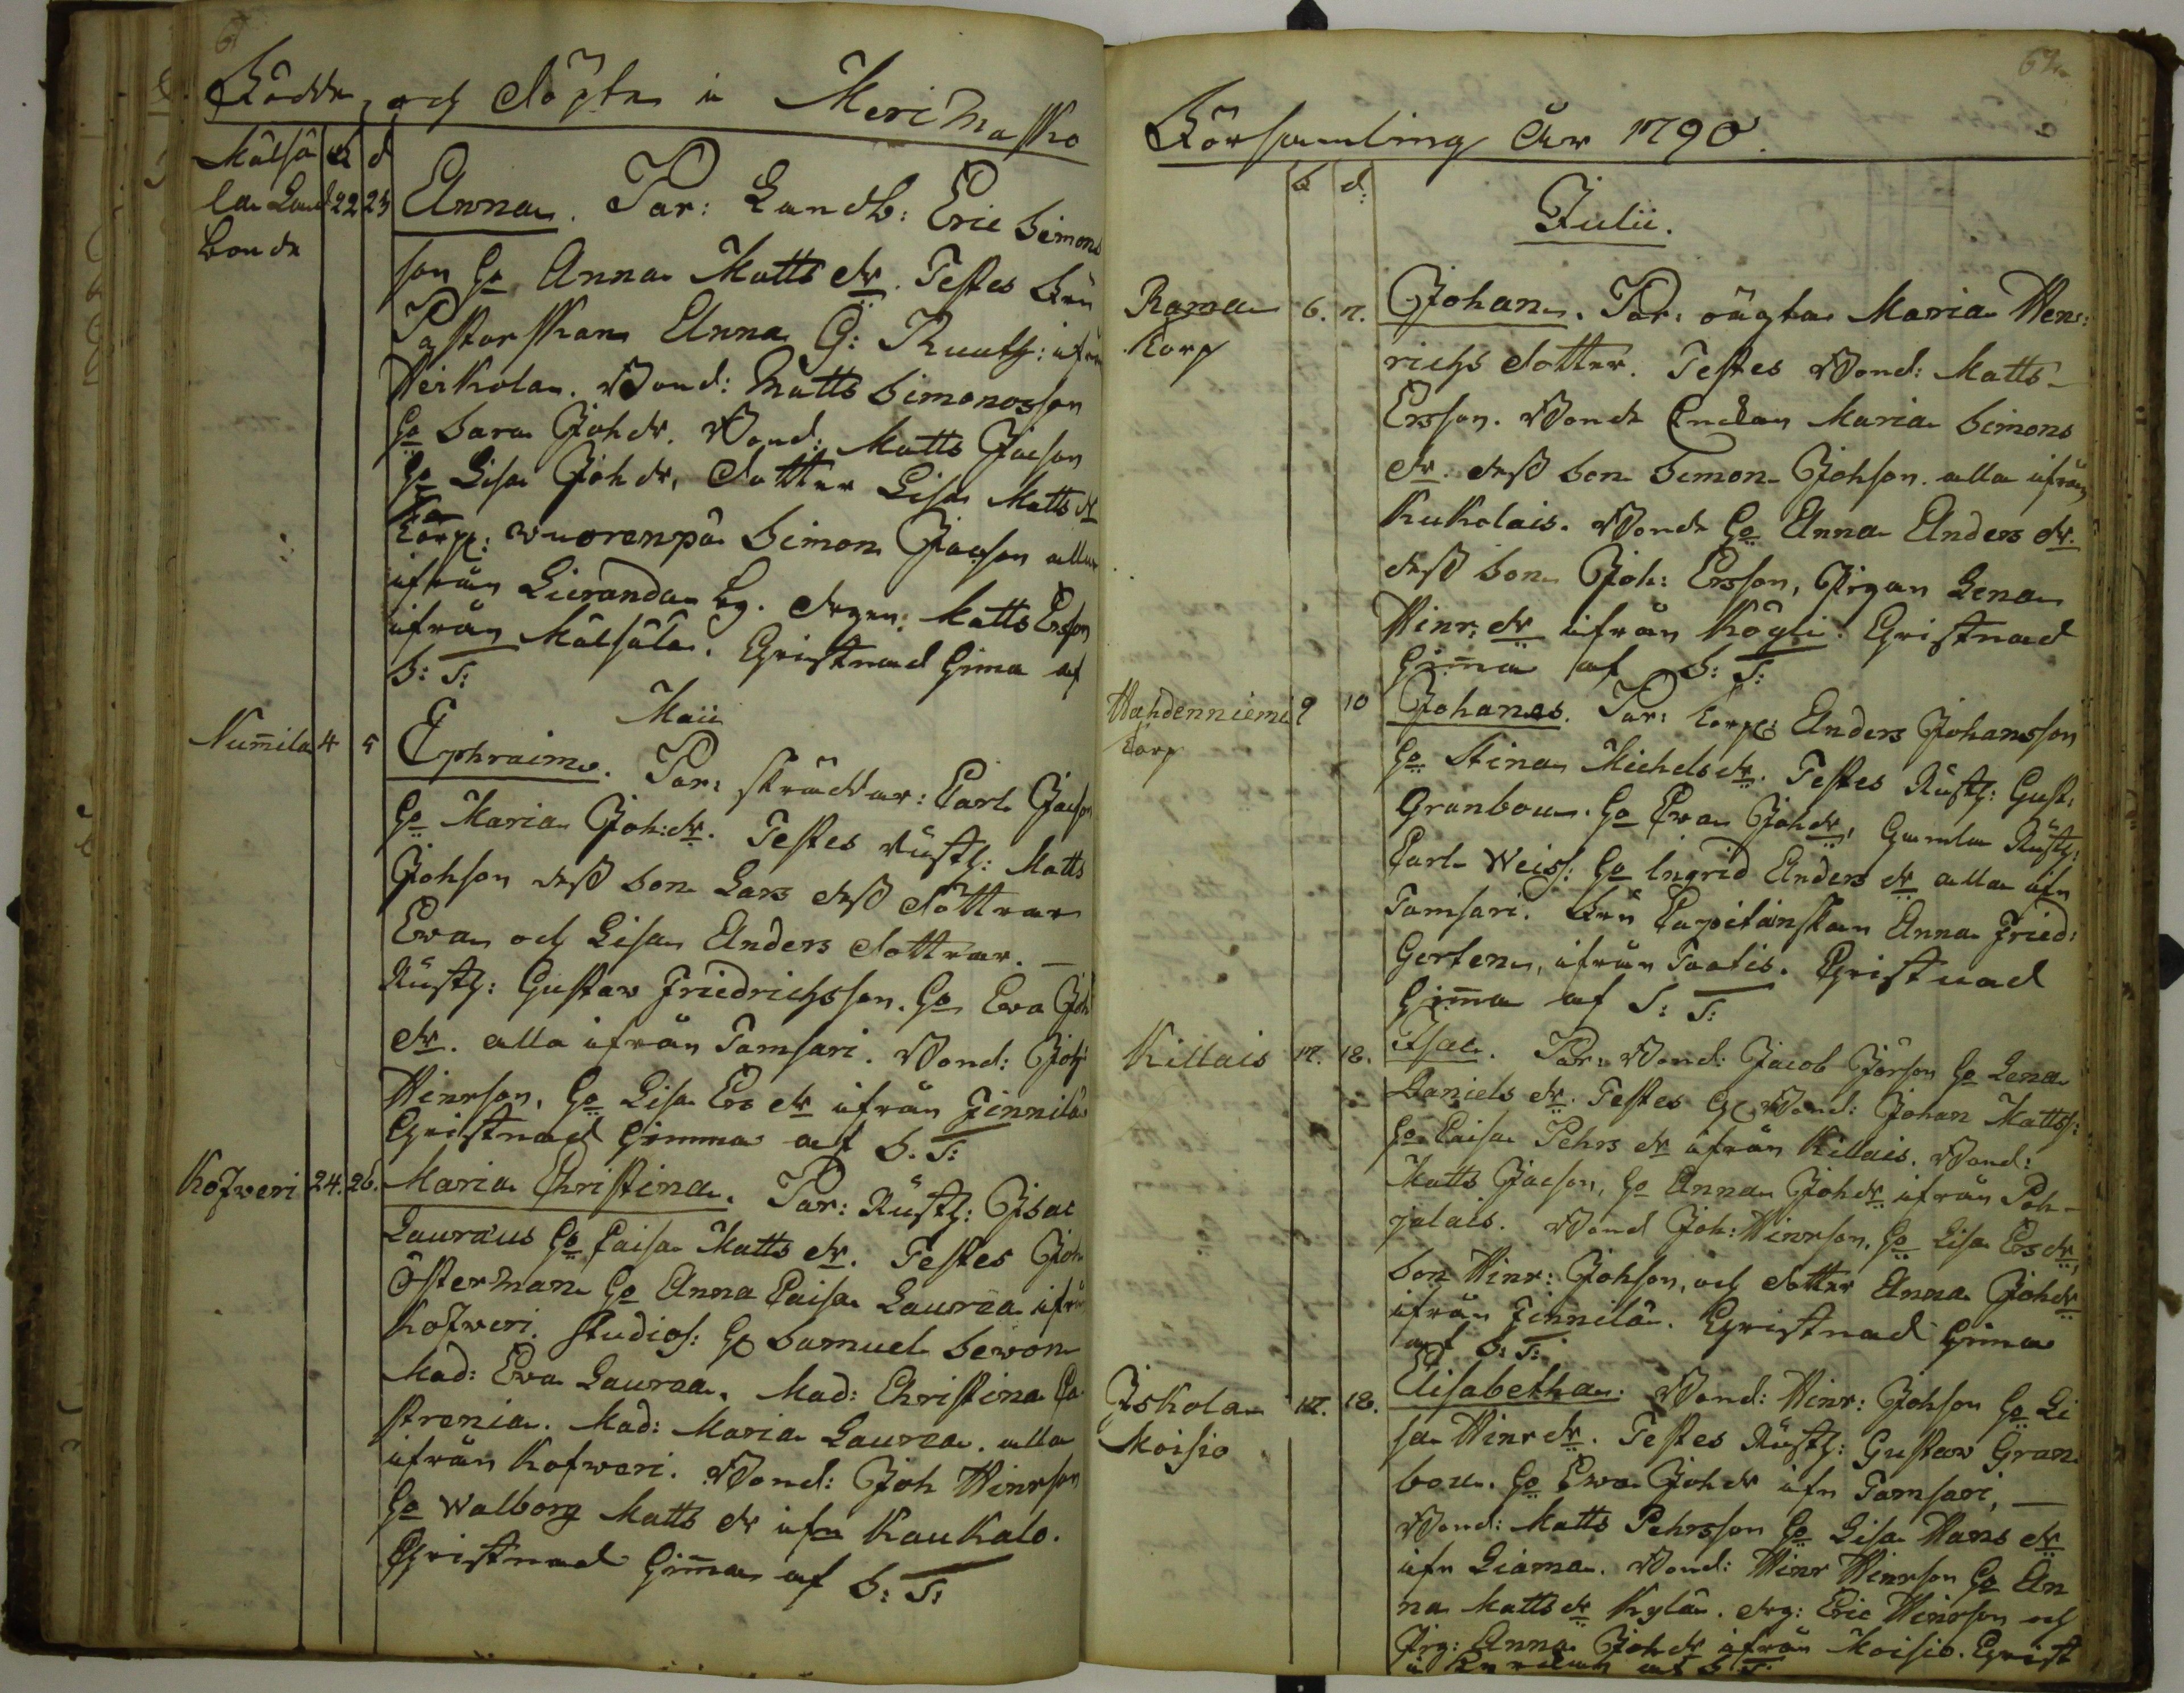 61
Födde och döpte i Merimasko
Målså b d
la Land 22 23 Anna. Par: Landb: Eric Simons
bonde
son Ho Anna Matts dr. Testes Fru
Pastorskan Anna G: Ruuth: ifrån
Heikola. Bond: Matts Simonosson
Ho Sara Joh dr. Bond: Matts Jacson
Ho Lisa Joh dr, dotter Lisa Matts dr
Korp: Wuorenpä Simon Jacson alla
ifrån Lieranda by. dreng: Matts Ersson
ifrån Målsåla. Christnad hema af
S: T:
Maii
Numila 4 5 Ephraim. Par: skräddar: Carl Jacson
Ho Maria Joh: dr. Testes Rusth: Matts
Johson dess son Lars dess döttrar
Ewa och Lisa Anders döttrar. —
Rusth: Gustav Friedrichsson. Ho Ewa Joh
dr. alla ifrån Tamsari. Bond: Joh
Hinrson, Ho Lisa Ers dr ifrån Jinnilä
Christnad himma af S. T:
Kofweri 24. 26. Maria Christina. Par: Rusth: Isac
Lauraus Ho Caisa Matts dr. Testes Joh
Österman Ho Anna Caisa Lauraa ifrån
Kofweri. Studios: H Samuel Sewon
Mad: Ewa Lauraa. Mad: Christina Ca
strenia. Mad: Maria Lauraa. alla
ifrån Kofweri. Bond: Joh Hinrson
Ho Walborg Matts dr ifn Kaukalo.
Christnad hima af S: T:
62
Församling År 1790.
b d:
Julii.
Rama 6. 7. Johan. Par: oägta Maria Hen:
Korp
richs dotter. Testes Bond: Matts
Ersson. Bonde Enckan Maria Simons
dr. dess son Simon Johson. alla ifrån
Kukolais. Bonde Ho Anna Anders dr.
dess son Joh: Ersson, Pigan Lena
Hinr: dr ifrån Kögli. Christnad
hima af S: T:
Wahdenniemi 9 10 Johanes. Par: Korpl Anders Johansson
Korp
Ho Stina Michels dr. Testes Rusth: Gust:
Granbou. Ho Ewa Joh dr, Gamla Rusth:
Carl Weiss: Ho Ingrid Anders dr alla ifn
Tamsari. Fru Capitänskan Anna Fried:
Gerten, ifrån Taatis. Christnad
hima af S: T:
Killais 17. 18. Isac. Par: Bond: Jacob Jörson Ho Lena
Daniels dr. Testes H Bond: Johan Matts:
Ho Caisa Pehrs dr ifrån Killais. Bond:
Matts Jacson, Ho Anna Joh dr ifrån Poh-
jalais. Bond Joh: Hinrson, Ho Lisa Ers dr,
Son Hinr: Johson, och dotter Anna Joh dr
ifrån Jinnilä. Christnad hima
af S: T:
Iskola 17. 18. Elisabetha. Bond: Hinr: Johson Ho Li
Moisio
sa Hinr dr. Testes Rusth: Gustav Gran
bou. Ho Ewa Joh dr ifn Tamsari, —
Bond: Matts Pehrsson Ho Lisa Hans dr
ifn Liama. Bond: Hinr Hinrson Ho An
na Matts dr Kylä. drg: Eric Hinrson och
Pig: Anna Joh dr ifrån Moisio. Christ
i Kyrckan af S T: